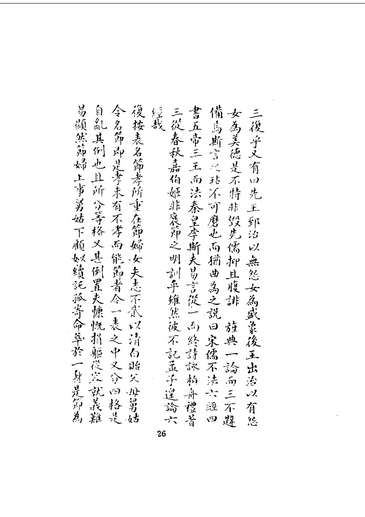 三復乎又有曰先王郅治以無怨女為盛衰後王出治以有怨
女為美德是不特非毀先儒抑且腹誹 旌典一論而三不韙
備焉斯言之玷不可磨也而猶曲為之說曰宋儒不法六經四
書五帝三王而法秦皇李斯夫易言從一而終詩詠柏舟禮著
三從春秋嘉伯姬非褒節之明訓乎雖然彼不記孟子遑論六
經哉
復按表名節孝所重在節婦女矢志不貳以清白貽父母舅姑
令名節即是孝未有不孝而能節者今一表之中又分四格是
自亂其例也且所分等格又甚倒置夫慷慨捐軀從容就義難
易顯然節婦上事舅姑下頫似續託孤寄命萃於一身是節為
26